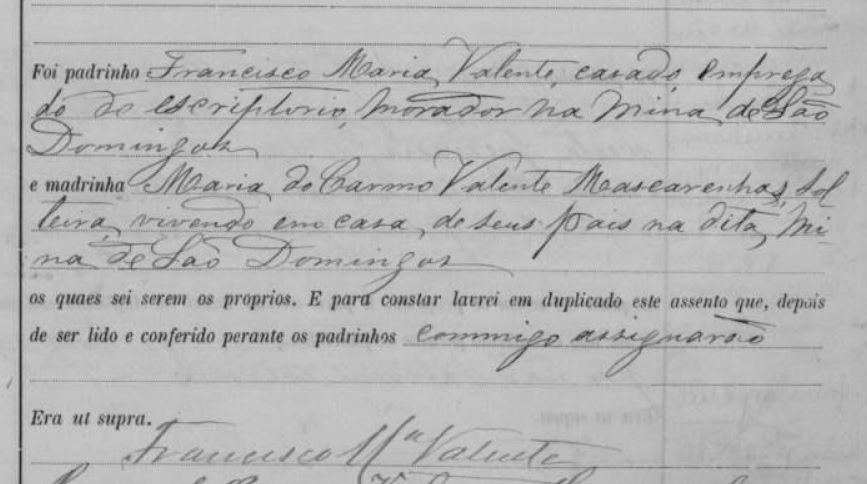 Foi padrinho Francisco Maria Valente, casado, emprega
do de escriptorio, morador na Mina de São
Domingos
e madrinha Maria do Carmo Valente Mascarenhas, sol
teira, vivendo em casa de seus pais na dita Mi-
na de São Domingos
os quaes sei serem os proprios. E para constar lavrei em duplicado este assento que, depois
de ser lido e conferido perante os padrinhos commigo assignarão
Era ut supra.
Francisco Mª Valente